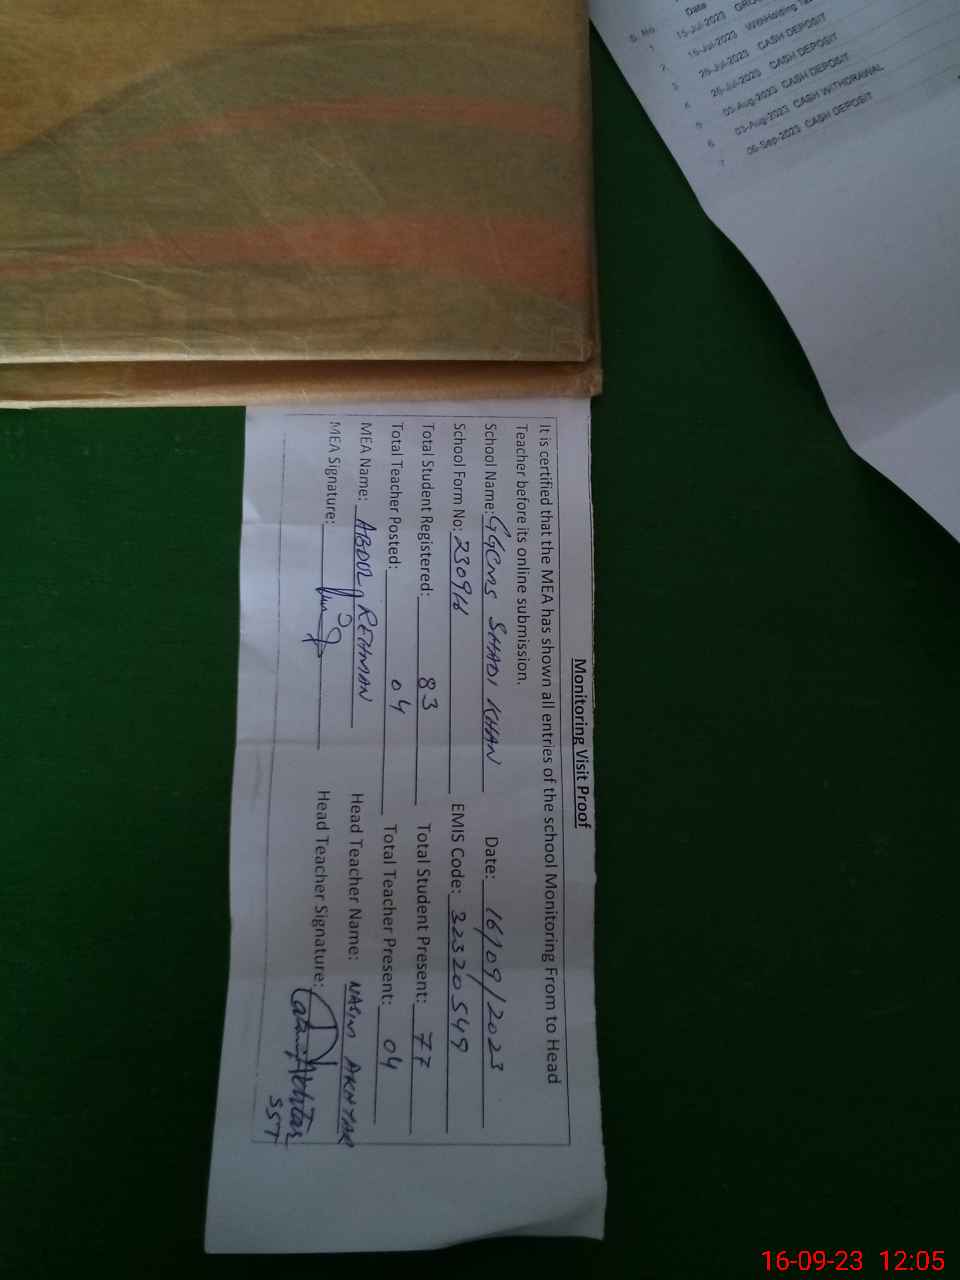 Monitoring Visit Proof
It is certified that the MEA has shown all entries of the school Monitoring From to Head
Teacher before its online submission.
School Name: GGCMS SHADI KHAN Date: 16/09/2023
School Form No: EMIS Code: 32320549
Total Student Registered: 83 Total Student Present: 77
Total Teacher Posted: 04 Total Teacher Present: 04
MEA Name: ABDUL REHMAN Head Teacher Name: NASIM AKHTAR
MEA Signature: Head Teacher Signature: Akhtar
SST
S. No Date
1 15-Jul-2023
2 15-Jul-2023 WithHolding
3 26-Jul-2023 CASH DEPOSIT
4 26-Jul-2023 CASH DEPOSIT
5 03-Aug-2023 CASH DEPOSIT
6 03-Aug-2023 CASH WITHDRAWAL
7 06-Sep-2023 CASH DEPOSIT
16-09-23 12:05